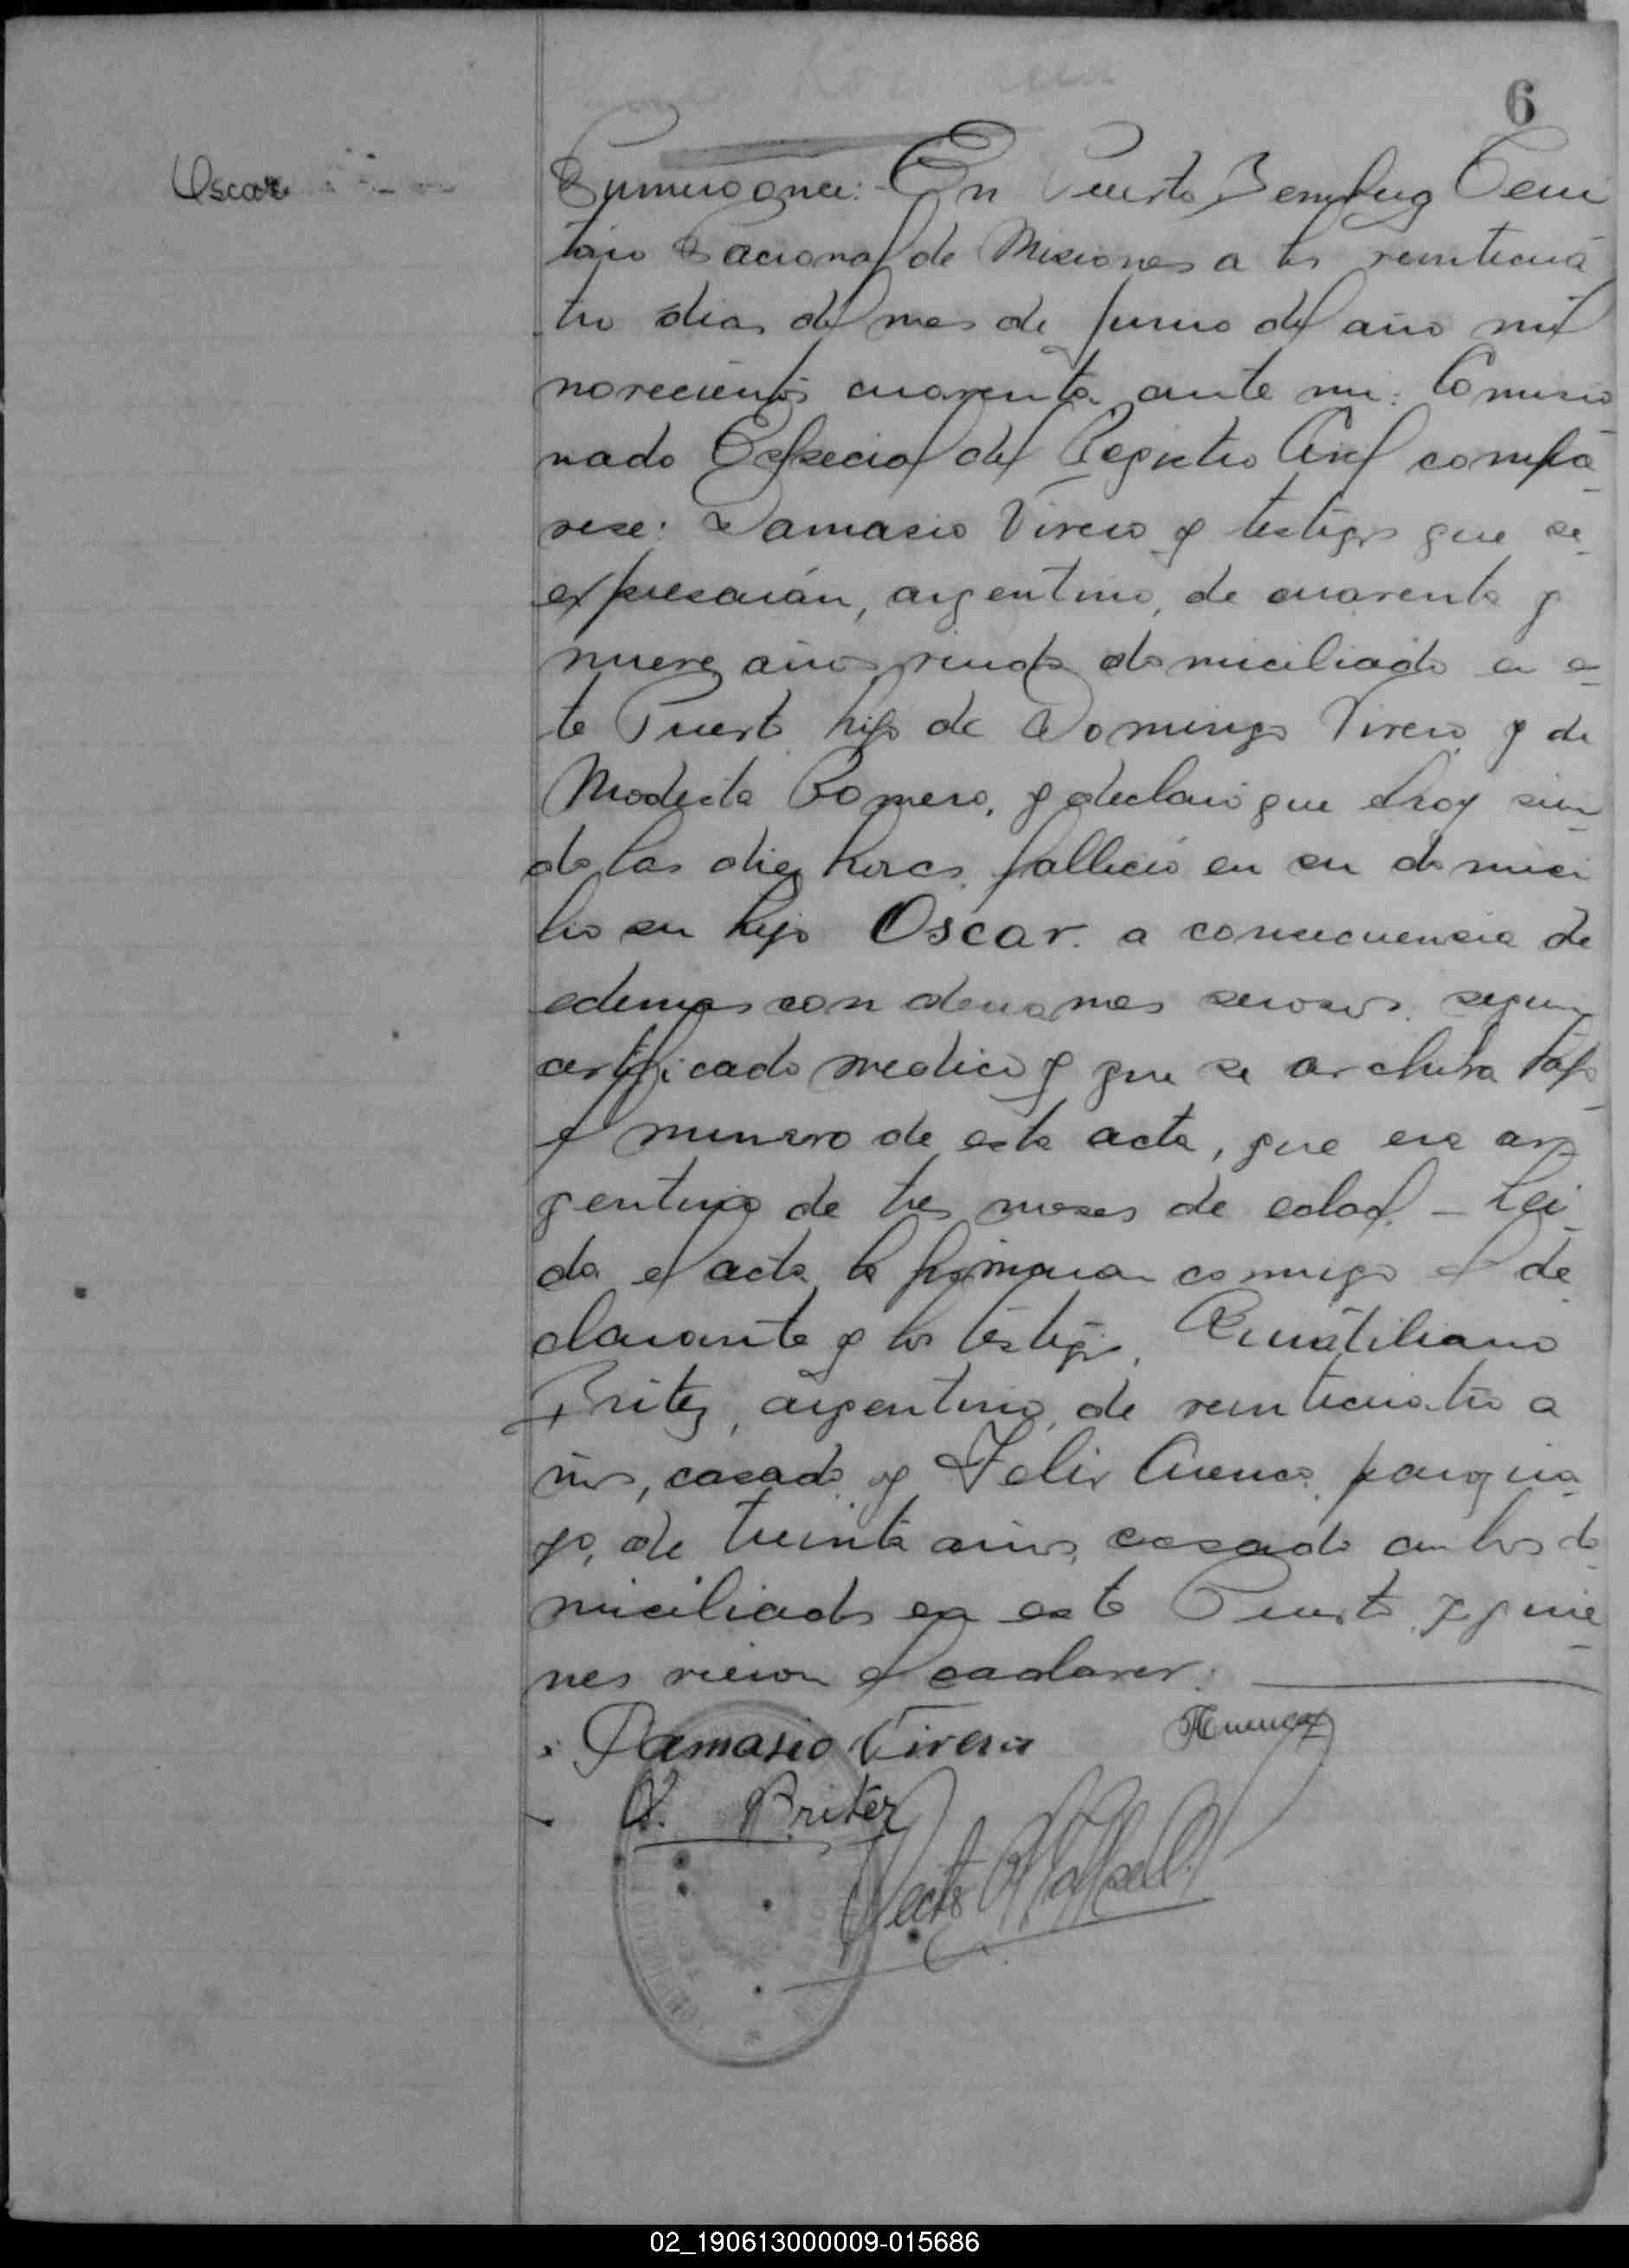 6
Oscar
Numero once: En Puerto Bemberg Terri
torio Nacional de Misiones a los veinticua
tro dias del mes de Junio del año mil
novecientos cuarenta ante mi: Comisio
nado Especial del Registro Civil compa
rece: Damasio Vireio y testigos que se
expresarán, argentino, de cuarenta y
nueve años viudo domiciliado en es
te Puerto hijo de Domingo Vireio y de
Modesta Romero, y declaró que hoy sien
do las diez horas falleció en su domici
lio su hijo Oscar a consecuencia de
edemas con derrames serosos segun
certificado medico y que se archiva bajo
el numero de esta acta, que era ar
gentino de tres meses de edad. - Lei
da el acta la firmaron conmigo el de
clarante y los testigos, Quintiliano
Britez, argentino, de veinticuatro a
ños, casado y Felix Cuenca paragua
yo, de treinta años, casado ambos do
miciliados en este Puerto y quie
nes vieron el cadaver.
Damasio Vireia
FCuenca
Q. Britez
02_190613000009-015686